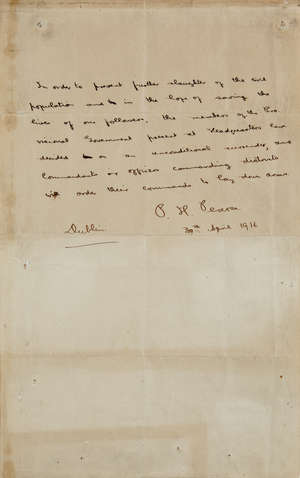 In order to prevent further slaughter of the civil
population and in the hope of saving the
lives of our followers, the members of the Pro-
visional Government present at Headquarters have
decided on an unconditional surrender, and
commandants or officers commanding districts
will order their commands to lay down arms.
P. H. Pearse
Dublin
30th April 1916